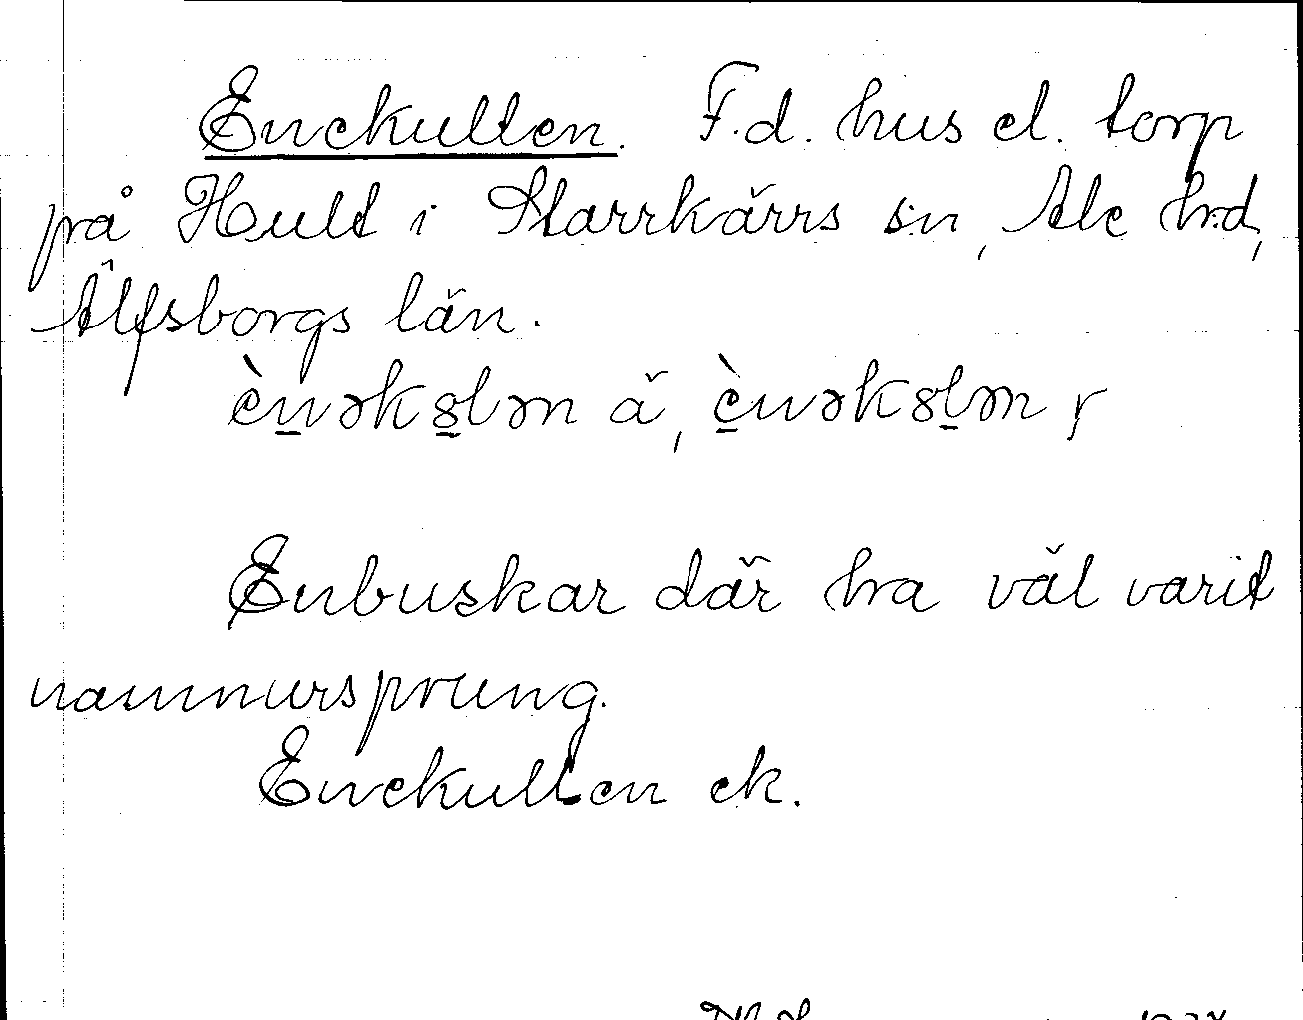 Enekullen. F.d. hus el. torp
på Hult i Starrkärrs sn, Ale hd,
Älfsborgs län.
ènəkꝏlən ä, ènəkꝏlən
Enbuskar där ha väl varit
namnursprung.
Enekullen ek.